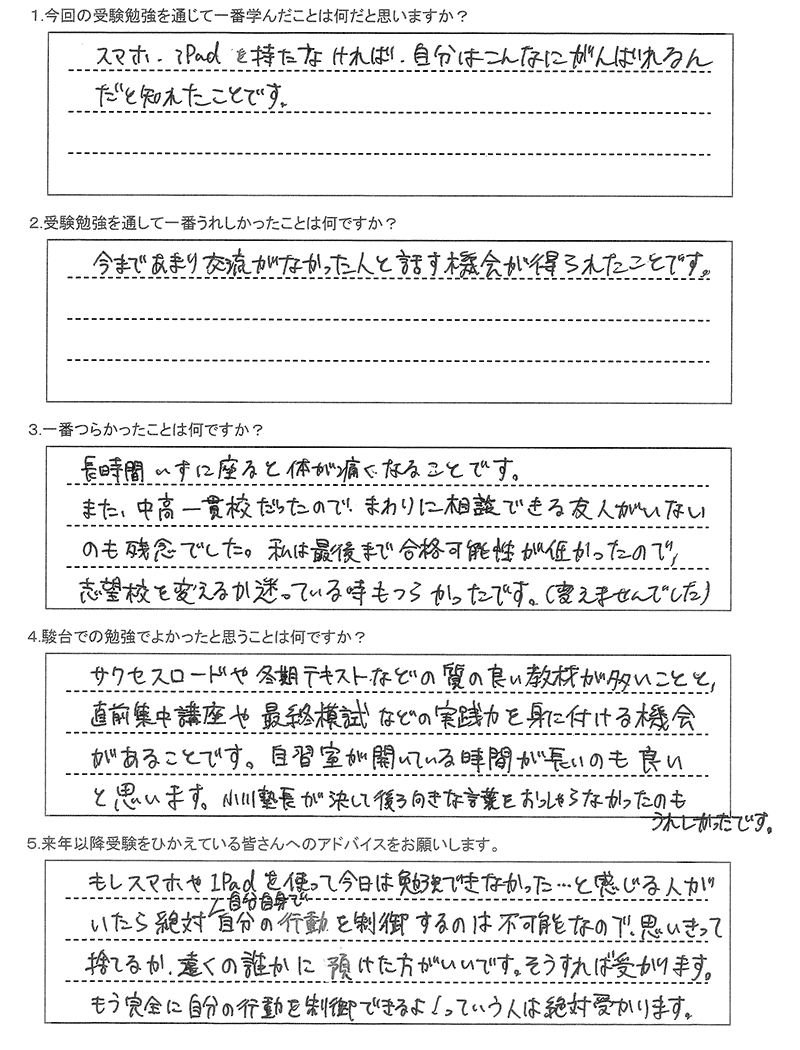 1.今回の受験勉強を通じて一番学んだことは何だと思いますか？
スマホ．iPadを持たなければ．自分はこんなにがんばれるん
だと知れたことです。
2.受験勉強を通して一番うれしかったことは何ですか？
今まであまり交流がなかった人と話す機会が得られたことです。
3.一番つらかったことは何ですか？
長時間いすに座ると体が痛くなることです。
また、中高一貫校だったので、まわりに相談できる友人がいない
のも残念でした。私は最後まで合格可能性が低かったので、
志望校を変えるか迷っている時もつらかったです。(変えませんでした)
4.駿台での勉強でよかったと思うことは何ですか？
サクセスロードや冬期テキストなどの質の良い教材が多いことと、
直前集中講座や最終模試などの実践力を身に付ける機会
があることです。自習室が開いている時間が長いのも良い
と思います。小川塾長が決して後ろ向きな言葉をおっしゃらなかったのも
うれしかったです。
5.来年以降受験をひかえている皆さんへのアドバイスをお願いします。
もしスマホやIPadを使って今日は勉強できなかった…と感じる人が
自分自身で
いたら絶対自分の行動を制御するのは不可能なので、思いきって
捨てるか、遠くの誰かに預けた方がいいです。そうすれば受かります。
もう完全に自分の行動を制御できるよ！っていう人は絶対受かります。